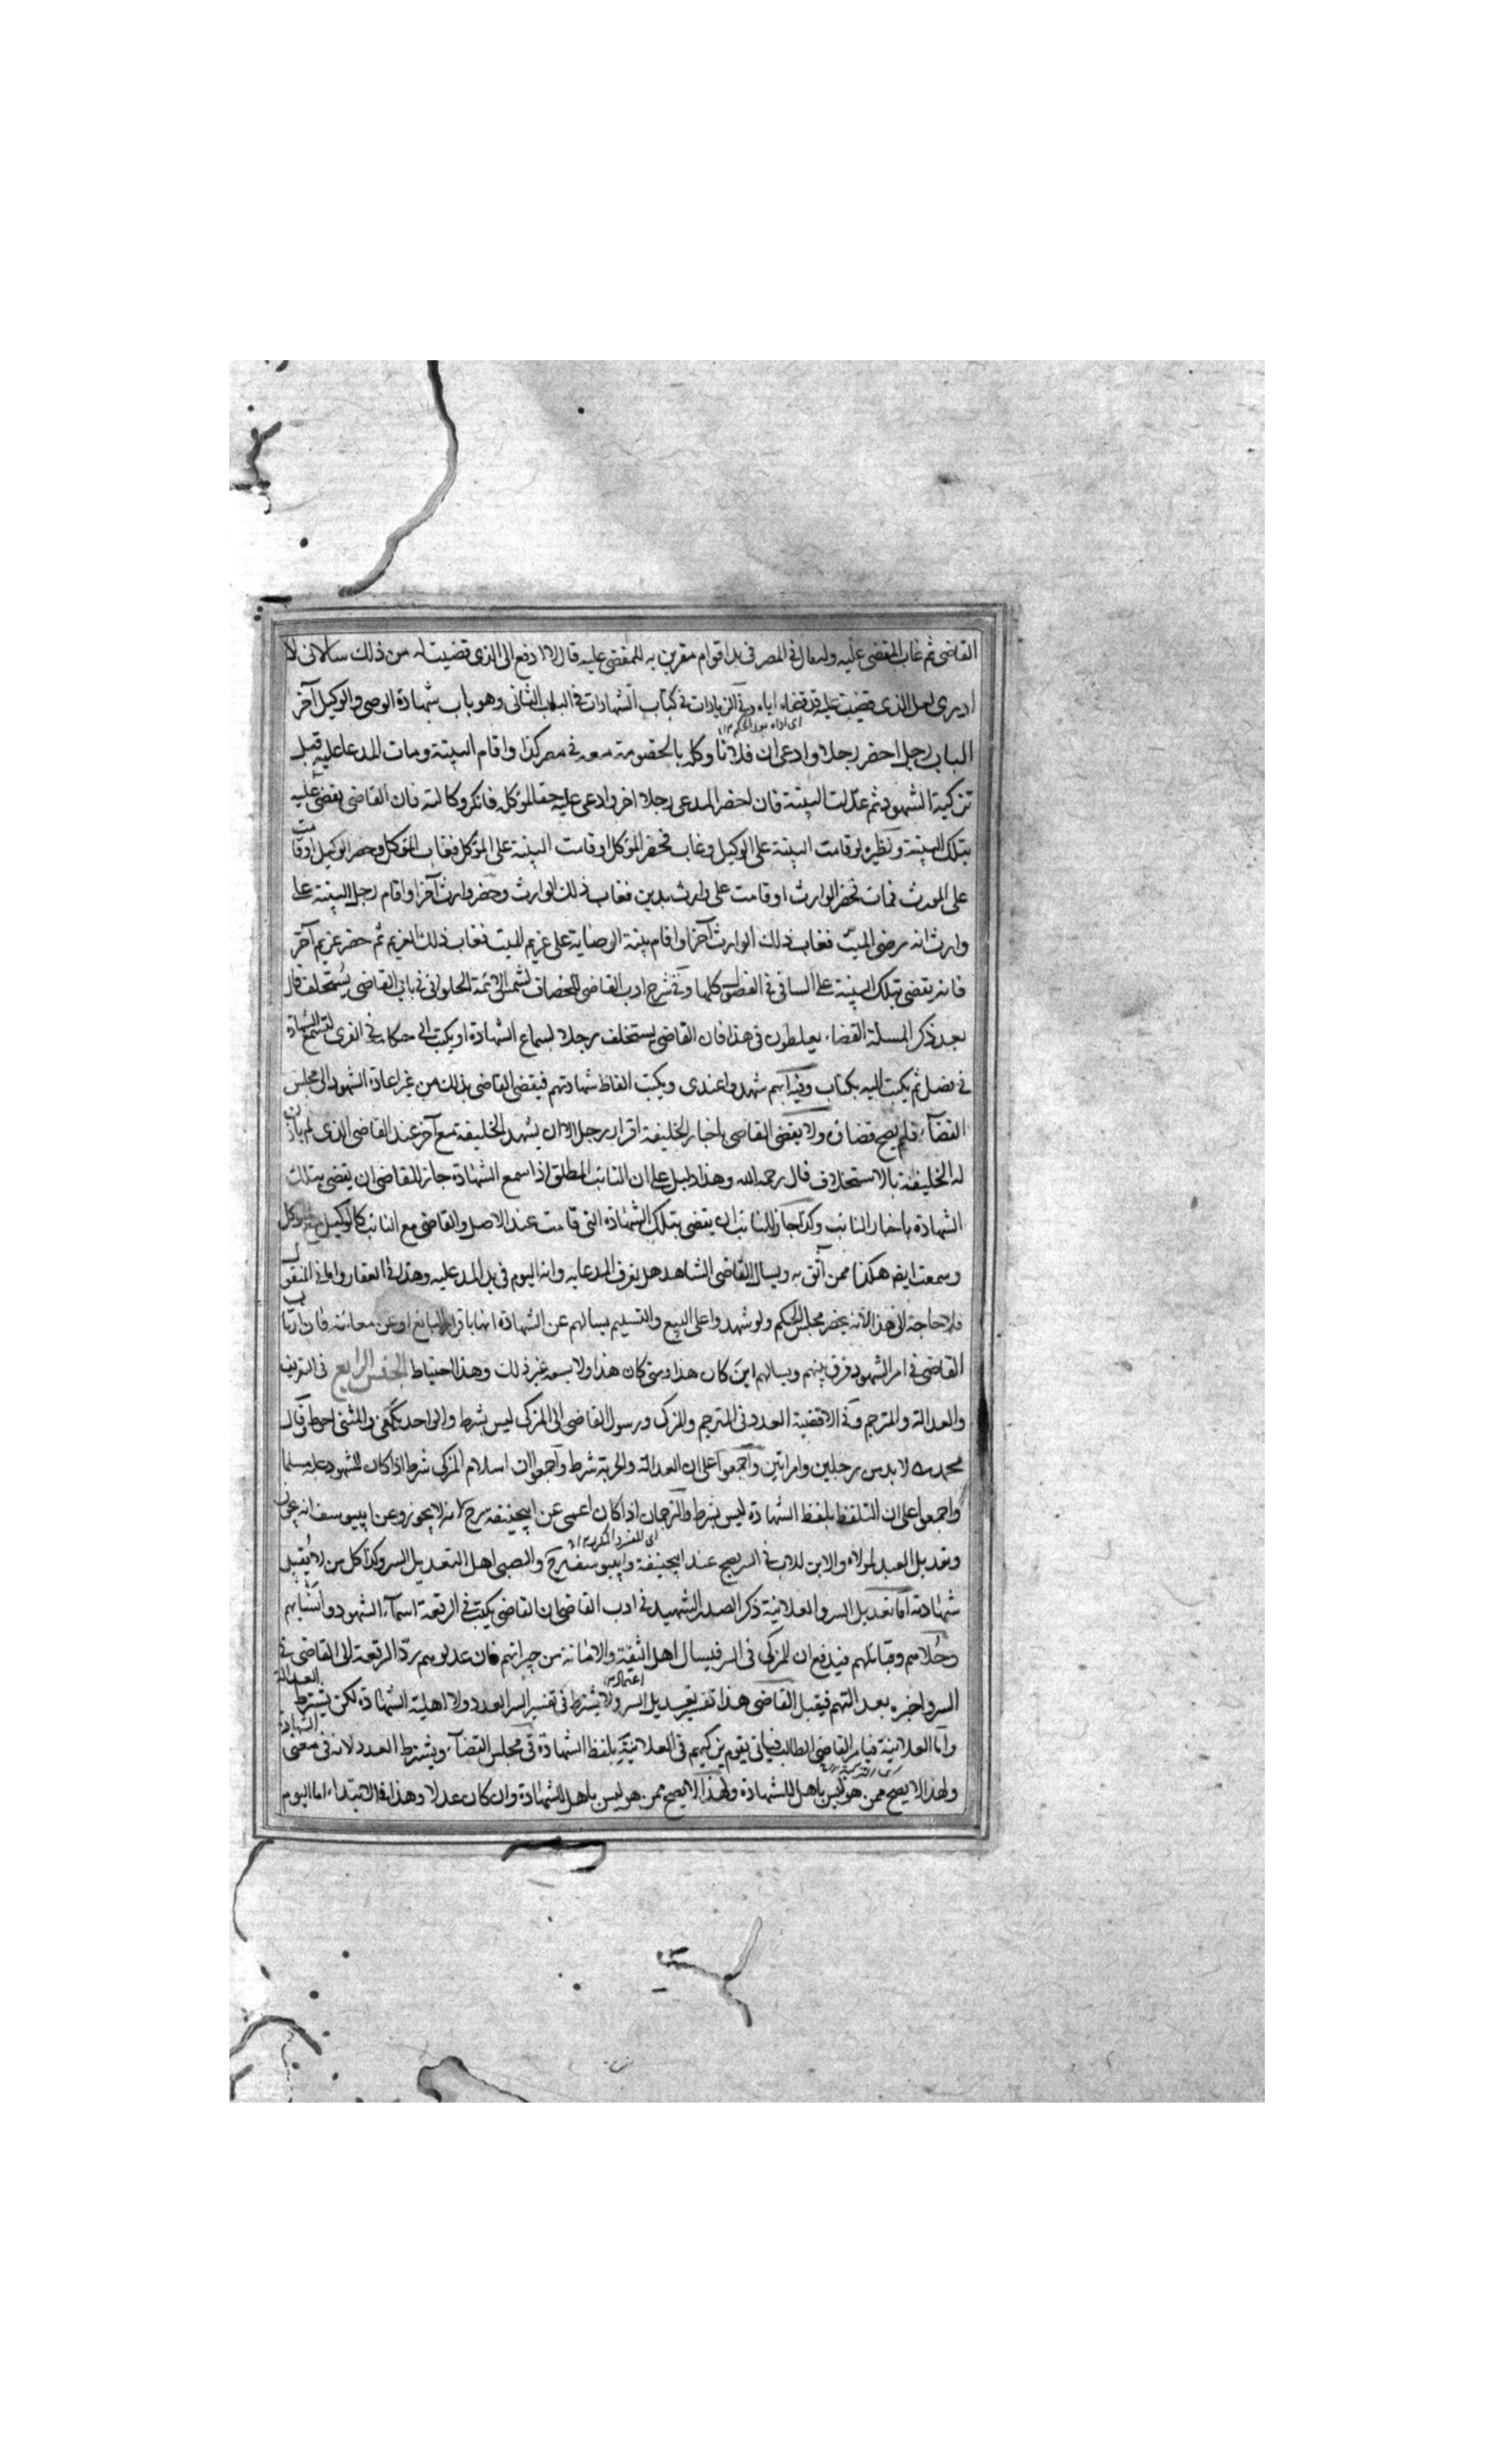 القاضى ثم غاب المقضى عليه وله مال فى المصر فى يد اقوام مقرين به للمقضى عليه قال لا ادفع الى الذى قضيت له من ذلك سالانى لا
ادرى لعل الذى قضيت عليه قد قضاه اياه وفى الزيادات فى كتاب الشهادات فى الباب الثانى وهو باب شهادة الوصى والوكيل آخر
الباب رجل احضر رجلا وادعى ان فلانا وكله بالخصومة معه فى مصر كذا واقام البينة ومات المدعا عليه قبل
تزكية الشهود ثم عدلت البينة فان احضر المدعى رجلا اخر وادعى عليه حقا لموكله فانكر وكالته فان القاضى يقضى عليه
بتلك البينة ونظيره لو قامت البينة على الوكيل وغاب فحضر الموكل او قامت البينة على الموكل فغاب الموكل وحضر الوكيل او قامت
على المورث فمات فحضر الوارث او قامت على وارث بدين فغاب ذلك الوارث وحضر وارث آخر او اقام رجل البينة على
وارث انه وصى الميت فغاب ذلك الوارث آخر او اقام بينة الوصاية على غريم للميت فغاب ذلك الغريم ثم حضر غريم آخر
فانه يقضى بتلك البينة على الثانى فى الفصول كلها وفى شرح ادب القاضى للخصاف لشمس الائمة الحلوانى فى باب القاضى يستخلف قال
بعد ذكر المسئلة القضاة يغلطون فى هذا فان القاضى يستخلف رجلا لسماع الشهادة او يكتب الى حكام فى القرى لتسمع الشهادة
فى فصل ثم يكتب اليه بكتاب وفيه انهم شهدوا عندى ويكتب الفاظ شهادتهم فيقضى القاضى بذلك من غير اعادة الشهود الى مجلس
القضاء فلم يصح قضاؤه ولا يقضى القاضى باخبار الخليفة اقرار رجل الا ان يشهد الخليفة مع آخر عند القاضى الذى لم ياذن
له الخليفة بالاستخلاف قال رحمه الله وهذا دليل على ان النائب المطلق اذا سمع الشهادة جاز للقاضى ان يقضى بتلك
الشهادة باخبار النائب وكذا جاز للنائب ان يقضى بتلك الشهادة التى قامت عند الاصل والقاضى مع النائب كالوكيل مع الموكل
وسمعت ايضا هكذا ممن اثق به ويسال القاضى الشاهد هل يعرف المدعا به وانه اليوم فى يد المدعى عليه وهذا فى العقار واما فى المنقول
فلا حاجة الى هذا لانه يحضر مجلس الحكم ولو شهدوا على البيع والتسليم يسالهم عن الشهادة انها باقرار البائع او عن معاينة فان ارتاب
القاضى فى امر الشهود فرق بينهم ويسالهم اين كان هذا ومتى كان هذا ولا يسعه غير ذلك وهذا احتياط الجنس الرابع فى التزكية
والعدالة والمترجم وفى الاقضية العدد فى المترجم والمزكى ورسول القاضى الى المزكى ليس بشرط والواحد يكفى والمثنى احوط وقال
محمد لا بد من رجلين وامراتين واجمعوا على ان العدالة والحرية شرط واجمعوا ان اسلام المزكى شرط اذا كان المشهود عليه مسلما
واجمعوا على ان التلفظ بلفظ الشهادة ليس بشرط والترجمان اذا كان اعمى عن ابيحنيفة رح انه لا يجوز وعن ابييوسف انه يجوز
وتعديل العبد لمولاه والابن للاب فى السر يصح عند ابيحنيفة وابييوسف رح والصبى اهل التعديل السر وكذا كل من لا يقبل
شهادته اما تعديل السر والعلانية ذكر الصدر الشهيد فى ادب القاضى ان القاضى يكتب فى الرقعة اسماء الشهود وانسابهم
وحلاهم وقبائلهم فيدفع ان للمزكى فى السر فيسال اهل الثقة والامانة من جيرانهم فان عدلوهم ردّ الرقعة الى القاضى فى
السر واخبره بعد التهم فيقبل القاضى هذا تفسير تعديل السر ولا يشترط فى تفسير السر العدد ولا اهلية الشهادة لكن يشترط العدالة
واما العلانية فيامر القاضى الطالب فياتى بقوم يزكيهم فى العلانية بلفظ الشهادة فى مجلس القضاء ويشترط العدد لانه فى معنى الشهادة
ولهذا لا يصح ممن هو ليس باهل للشهادة ولهذا لا يصح ممن هو ليس باهل للشهادة وان كان عدلا وهذا فى الابتداء اما اليوم